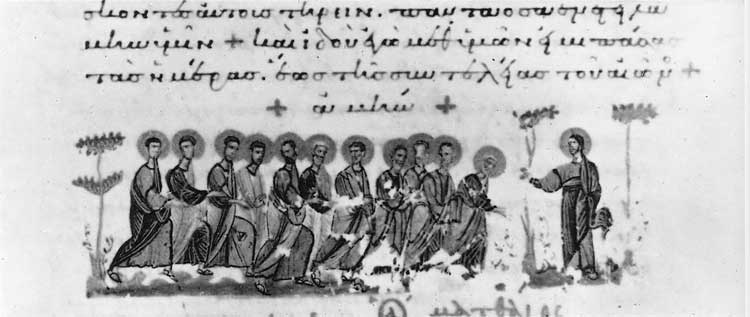 σκοντες αὐτοὺς τηρεῖν. πάντα ὅσα ἐνετειλά
μην ὑμῖν + καὶ ἰδοὺ ἐγὼ μεθ ὑμῶν εἰμι πάσας
τὰς ἡμέρας. ἕως τῆς συντελείας τοῦ αἰῶν +
+ ἀμήν +